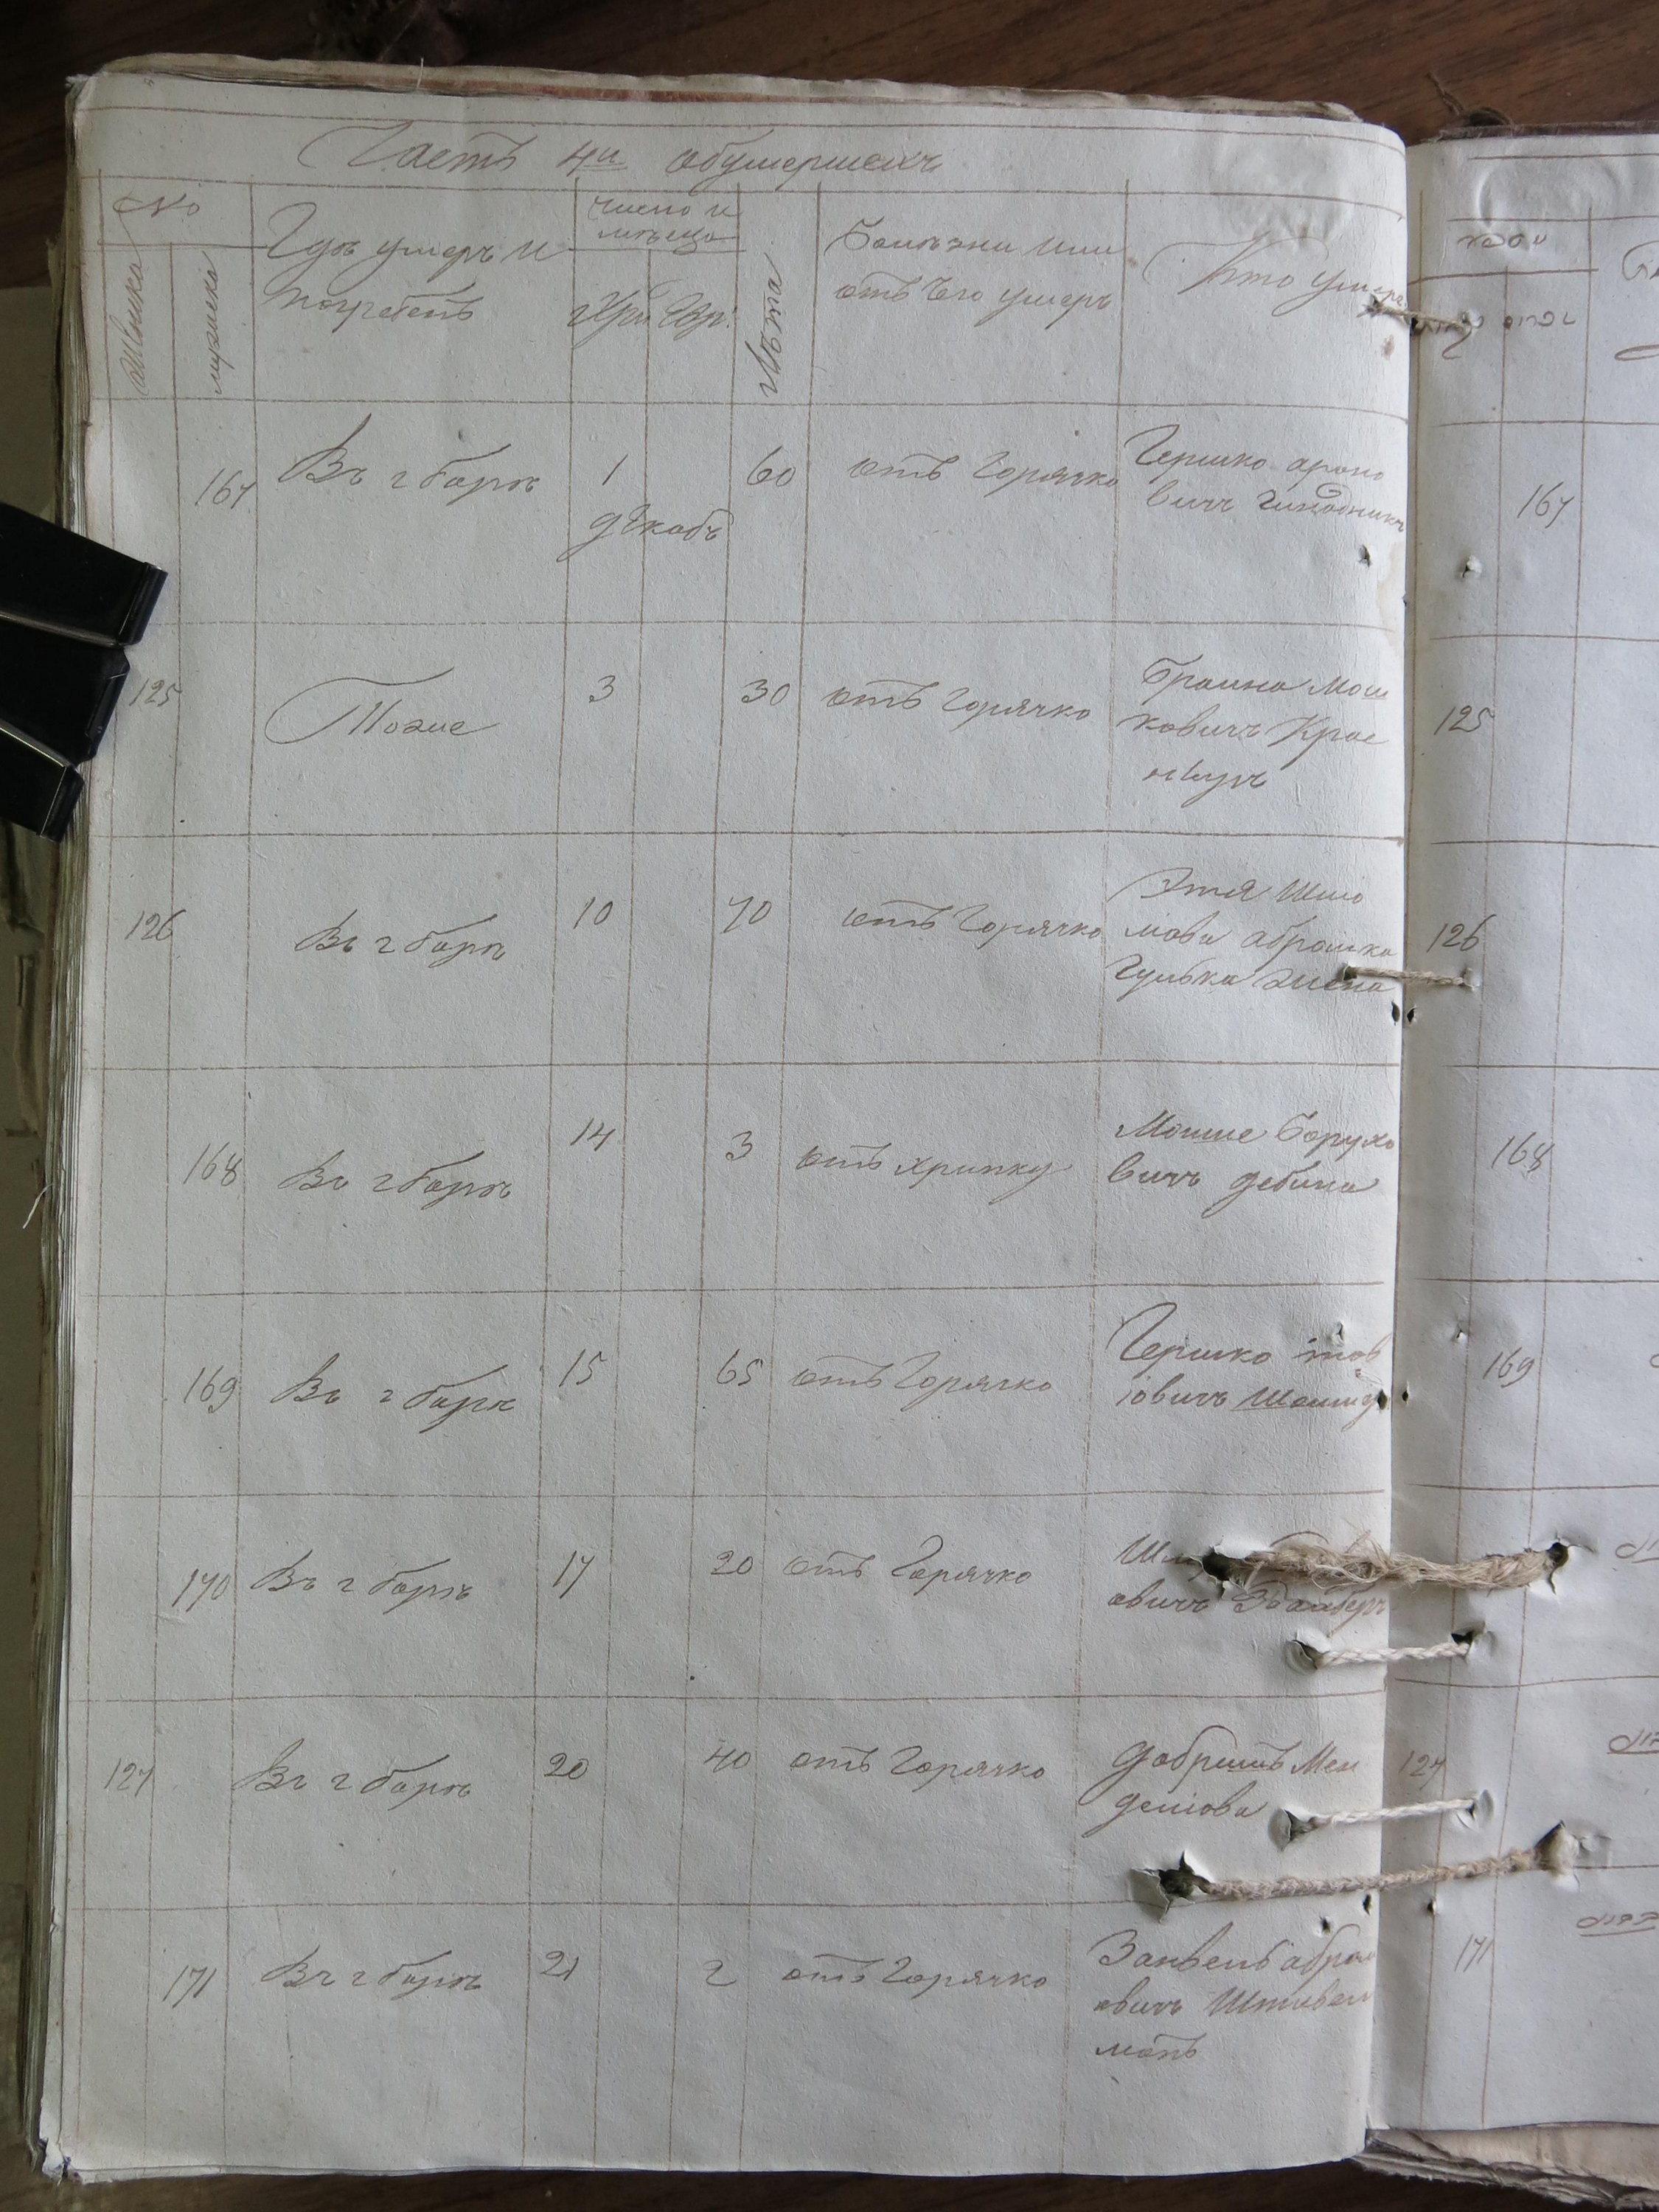 Часть 4я обумершихъ
№
женска
мужеска
Где умеръ и
погребенъ
число и
мѣсяца
Хри Евр.
Лѣта
Болѣзни или
отъ чего умеръ
Кто умеръ
167 Въ г барѣ 1 60 отъ горячко Гершко ароно
декабъ вичъ 167
125 Тоже 3 30 отъ горячко Браина Мош
ковичъ 125
126 Въ г барѣ 10 70 отъ горячко Этя Шмо
мова абрамка 126
гулька жена
168 Въ г барѣ 14 3 отъ хрипку Мошше Борухо
вичъ дебина 168
169 Въ г барѣ 15 65 отъ горячко Гершко
іовичъ 169
170 Въ г барѣ 17 20 отъ горячко
овичъ
127 Въ г барѣ 20 40 отъ горячко добришъ Мен 127
делова
171 Въ г барѣ 21 2 отъ горячко Занвель абра
овичъ Штивель 171
манъ